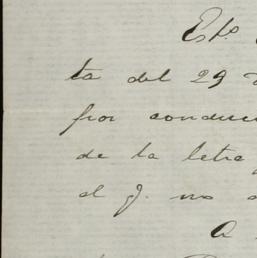 Eto.
ta del 29
por conduc
de la letra
el J. no
A